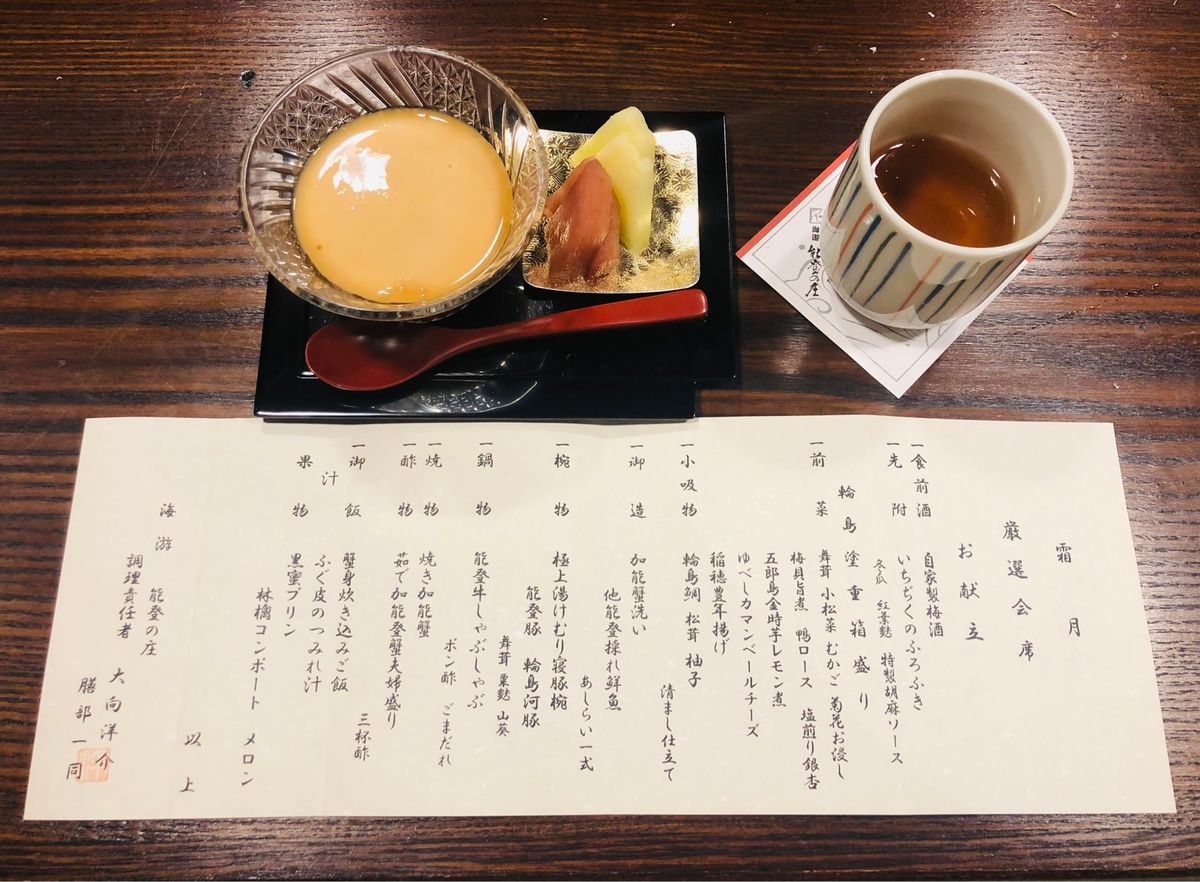 海游
能登の庄
霜月
厳選会席
お献立
一食前酒 自家製梅酒
一先附 いちぢくのふろふき
冬瓜 紅葉麩 特製胡麻ソース
輪島塗重箱盛り
一前菜 舞茸 小松菜 むかご 菊花お浸し
梅貝旨煮 鴨ロース 塩煎り銀杏
五郎島金時芋レモン煮
ゆべしカマンベールチーズ
稲穂豊年揚げ
一小吸物 輪島鯛 松茸 柚子
清まし仕立て
一御造 加能蟹洗い
他能登採れ鮮魚
あしらい一式
一椀物 極上湯けむり寝豚椀
能登豚 輪島河豚
舞茸 粟麩 山葵
一鍋物 能登牛しゃぶしゃぶ
ポン酢 ごまだれ
一焼物 焼き加能蟹
一酢物 茹で加能登蟹夫婦盛り
三杯酢
一御飯 蟹身炊き込みご飯
汁 ふぐ皮のつみれ汁
果物 黒蜜プリン
林檎コンポート メロン
以上
海游 能登の庄
調理責任者 大向洋介
膳部一同